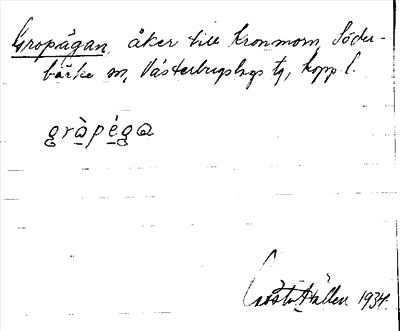 Gropägan, åker till Kronmorn, Söder-
bärke sn, Västerbergslags tg, Kopp. l.
gràpéga
Gösta Hallen 1934.